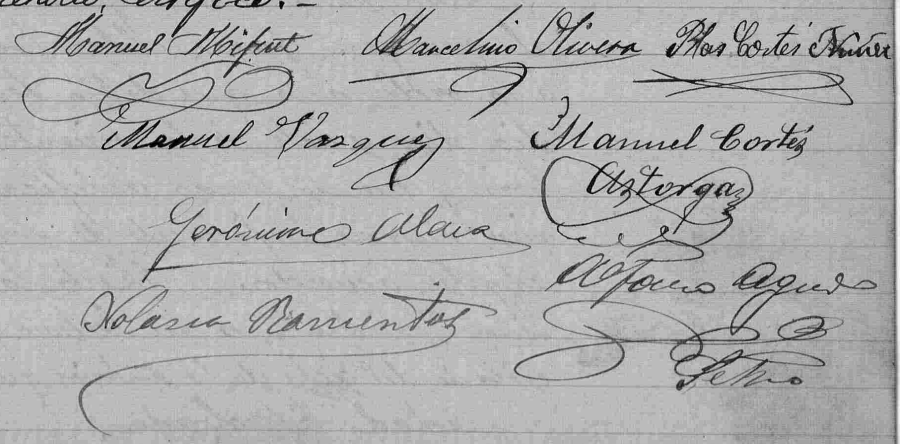 Manuel Mifsut Marcelino Olivera Blas Cortés Núñez
Manuel Vazquez Manuel Cortés
Astorga
Gerónimo
Alfonso Agudo
Nolasco Barrientos